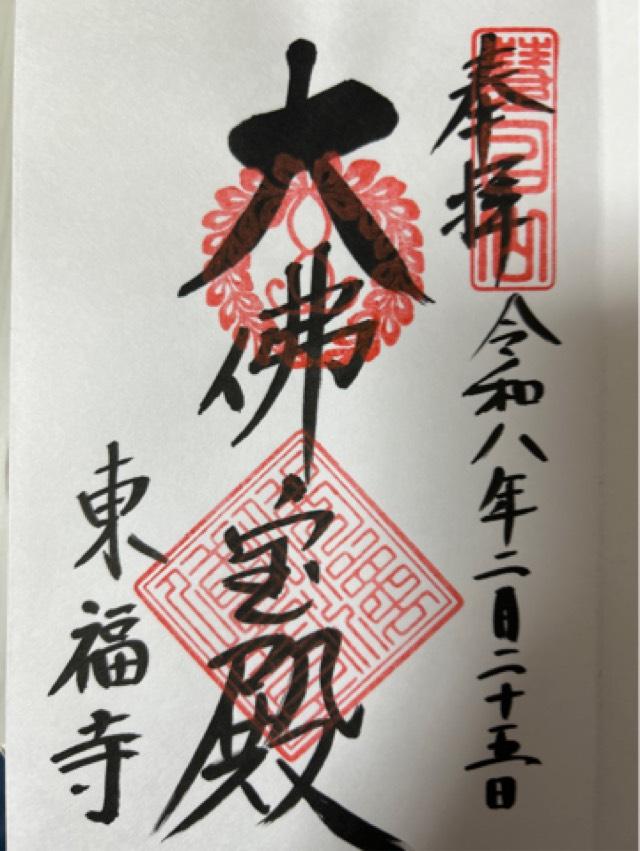 奉拝
令和八年二月二十五日
大佛宝殿
東福寺